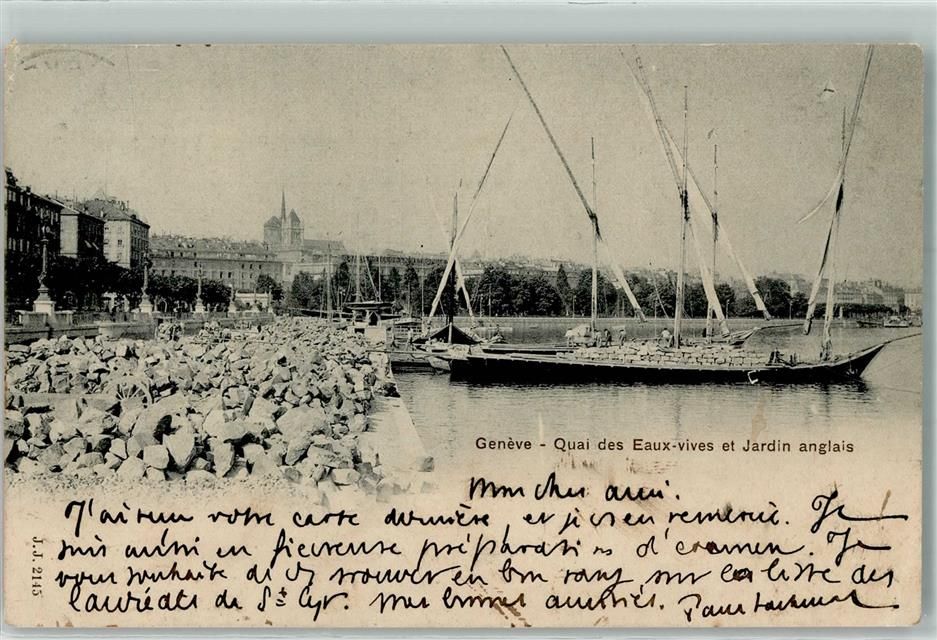 Genève - Quai des Eaux-vives et Jardin anglais
Mon cher ami.
J'ai reçu votre carte dernière, et je vous en remercie. Je
suis aussi en fiévreuse préparation d'examen. Je
vous souhaite de vous trouver en bon rang sur la liste des
lauréats de St Cyr. mes bonnes amitiés. Paul
J.J. 2145